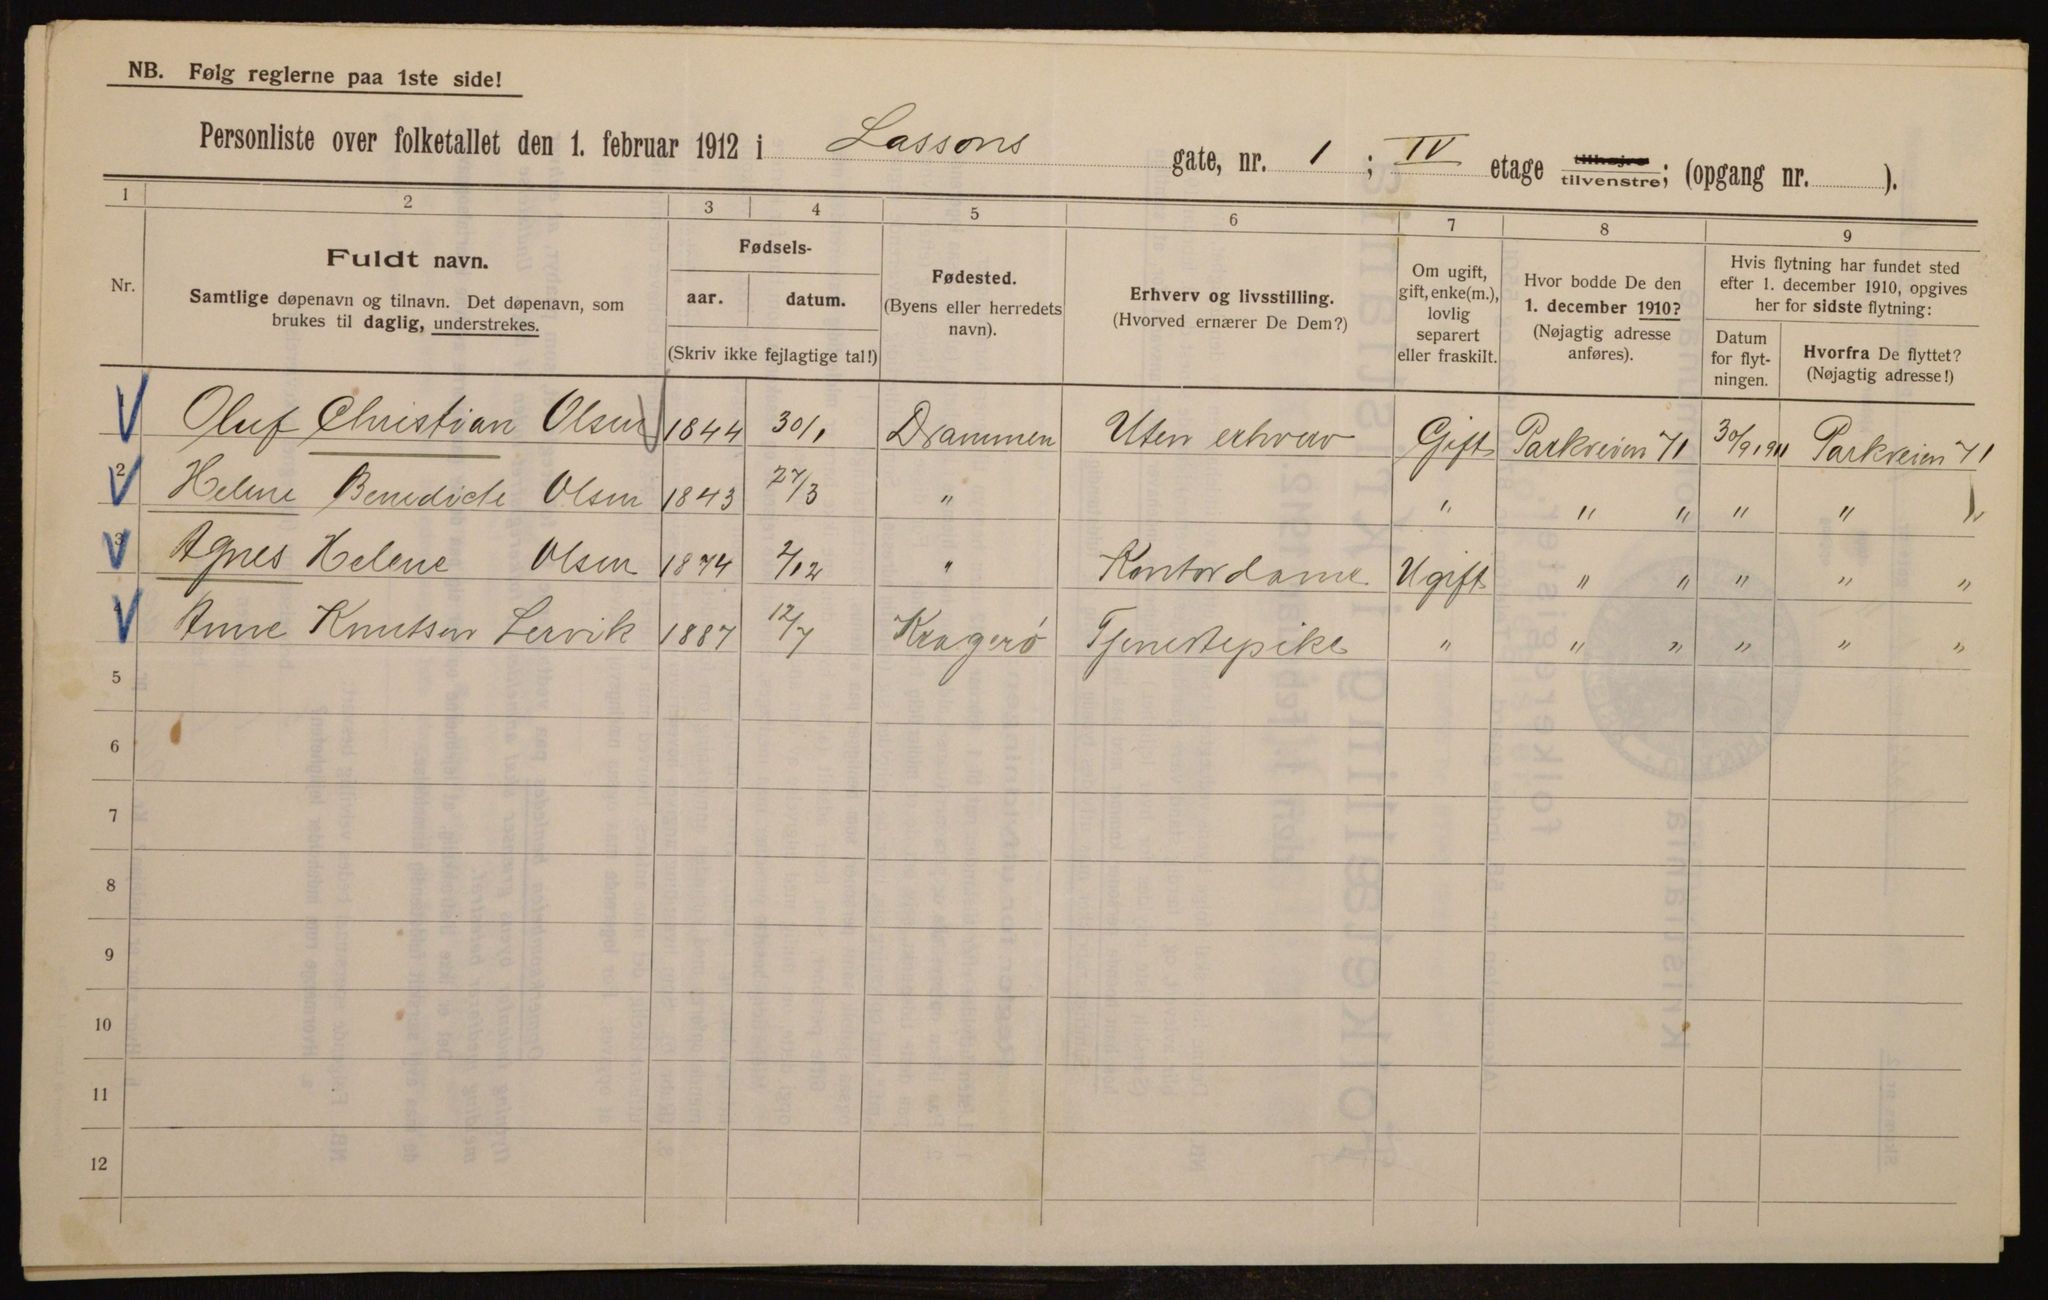 NB. Følg reglerne paa 1ste side!
Personliste over folketallet den 1. februar 1912 i Lassons gate, nr. 1 ; IV etage tilhøjre tilvenstre; (opgang nr. ).
1 2 3 4 5 6 7 8 9
Nr.
Fuldt navn.
Samtlige døpenavn og tilnavn. Det døpenavn, som
brukes til daglig, understrekes.
Fødsels-
aar. datum.
(Skriv ikke fejlagtige tal!)
Fødested.
(Byens eller herredets
navn).
Erhverv og livsstilling.
(Hvorved ernærer De Dem?)
Om ugift,
gift, enke(m.),
lovlig
separert
eller fraskilt.
Hvor bodde De den
1. december 1910?
(Nøjagtig adresse
anføres).
Hvis flytning har fundet sted
efter 1. december 1910, opgives
her for sidste flytning:
Datum
for flyt-
ningen.
Hvorfra De flyttet?
(Nøjagtig adresse!)
Oluf Christian Olsen 1844 30/1 Drammen Uten erhverv Gift Parkveien 71 30/9 1911 Parkveien 71
2 Helene Benedicte Olsen 1843 27/3 " " " " " " "
3 Agnes Helene Olsen 1874 2/12 " Kontordame Ugift " " " " "
Anne Knutsen Lervik 1887 12/7 Kragerø Tjenestepike " " " " " "
5
6
7
8
9
10
11
12